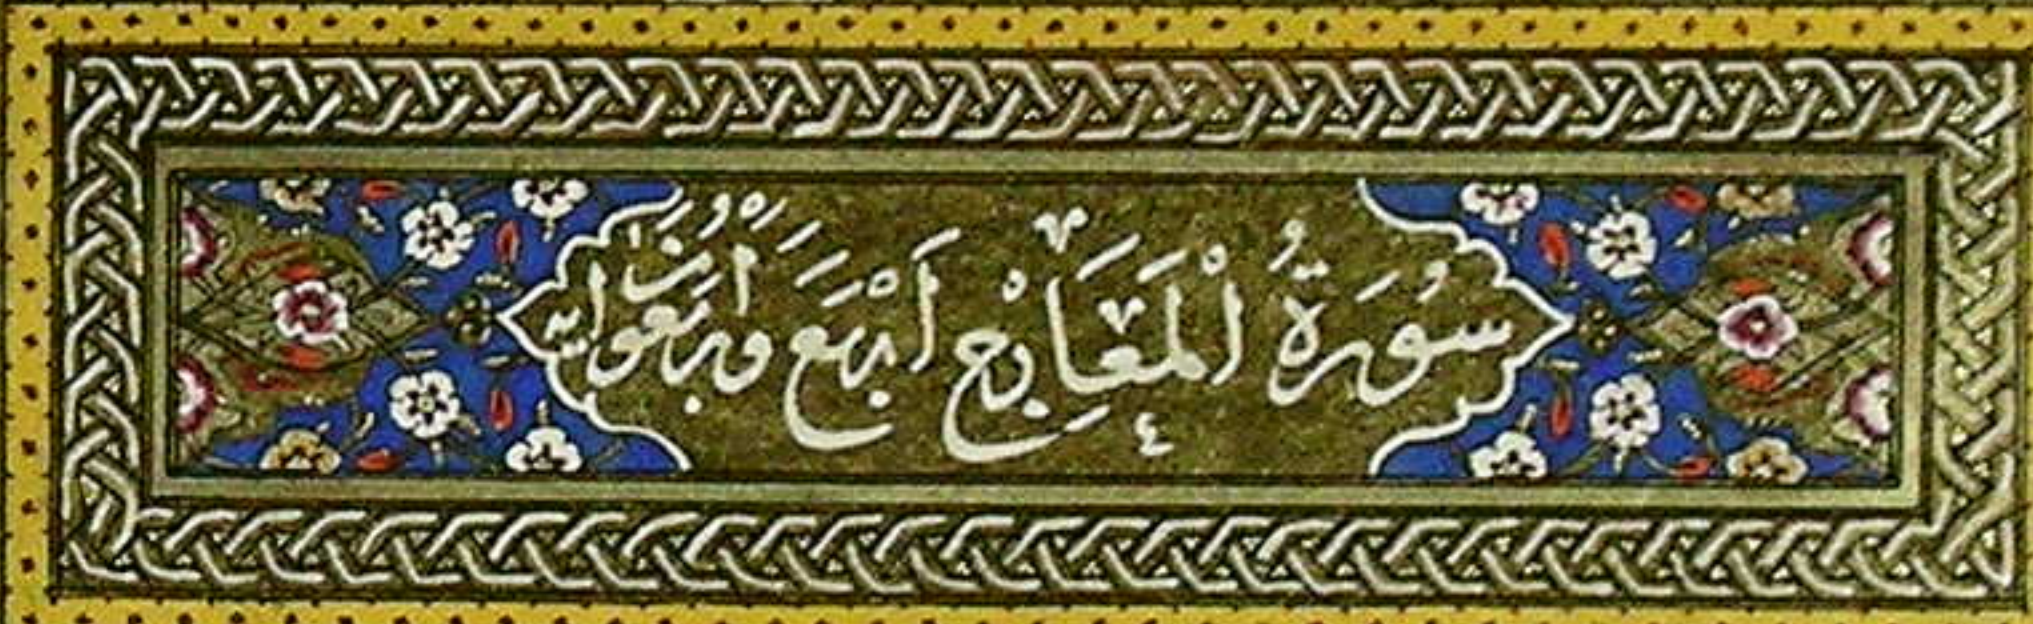 سُورَةُ الْمَعَارِجْ اَرْبَعَ وَاَرْبَعُونَ اٰيَةً